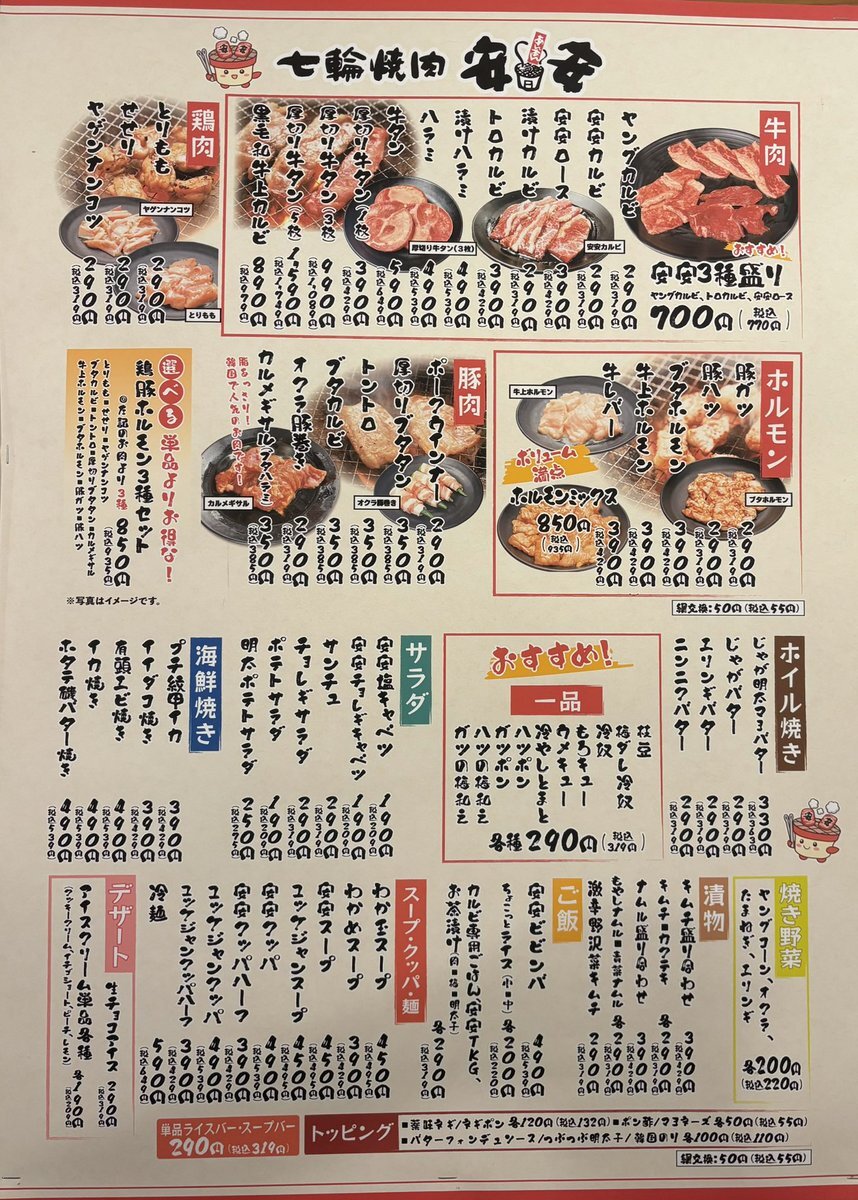 七輪焼肉 安安
牛肉
おすすめ!
安安3種盛り
ヤングカルビ、トロカルビ、安安ロース
700円(税込770円)
ヤングカルビ 290円(税込319円)
安安カルビ 290円(税込319円)
安安ロース 390円(税込429円)
漬けカルビ 290円(税込319円)
トロカルビ 390円(税込429円)
漬けハラミ 490円(税込539円)
ハラミ 490円(税込539円)
牛タン 590円(税込649円)
厚切り牛タン(1枚) 390円(税込429円)
厚切り牛タン(3枚) 990円(税込1,089円)
厚切り牛タン(5枚) 1,590円(税込1,749円)
黒毛和牛上カルビ 890円(税込979円)
安安カルビ
厚切り牛タン(3枚)
鶏肉
とりもも 290円(税込319円)
せせり 290円(税込319円)
ヤゲンナンコツ 290円(税込319円)
ヤゲンナンコツ
とりもも
ホルモン
豚ガツ 290円(税込319円)
豚ハツ 290円(税込319円)
ブタホルモン 390円(税込429円)
牛上ホルモン 390円(税込429円)
牛レバー 390円(税込429円)
牛上ホルモン
ブタホルモン
ボリューム満点
ホルモンミックス
850円(税込935円)
網交換:50円(税込55円)
豚肉
ポークウインナー 290円(税込319円)
厚切りブタタン 350円(税込385円)
トントロ 350円(税込385円)
ブタカルビ 350円(税込385円)
オクラ豚巻き 290円(税込319円)
カルメギサル(ブタハラミ) 350円(税込385円)
脂あっさり!
韓国で人気のお肉です!
カルメギサル
オクラ豚巻き
選べる 単品よりお得な!
鶏豚ホルモン3種セット
@左記のお肉より3種 850円(税込935円)
とりもも■せせり■ヤゲンナンコツ
ブタカルビ■トントロ■厚切りブタタン■カルメギサル
牛上ホルモン■ブタホルモン■豚ガツ■豚ハツ
※写真はイメージです。
ホイル焼き
じゃが明太マヨバター 330円(税込363円)
じゃがバター 290円(税込319円)
エリンギバター 290円(税込319円)
ニンニクバター 290円(税込319円)
おすすめ!
一品
枝豆
梅ダレ冷奴
冷奴
もろキュー
ウメキュー
冷やしとまと
ハツポン
ガツポン
ハツの梅和え
ガツの梅和え
各種290円(税込319円)
サラダ
安安塩キャベツ 190円(税込209円)
安安チョレギキャベツ 190円(税込209円)
サンチュ 290円(税込319円)
チョレギサラダ 290円(税込319円)
ポテトサラダ 190円(税込209円)
明太ポテトサラダ 250円(税込275円)
海鮮焼き
プチ紋甲イカ 390円(税込429円)
イイダコ焼き 390円(税込429円)
有頭エビ焼き 490円(税込539円)
イカ焼き 490円(税込539円)
ホタテ磯バター焼き 490円(税込539円)
焼き野菜
ヤングコーン、オクラ、
たまねぎ、エリンギ
各200円(税込220円)
漬物
キムチ盛り合わせ 390円(税込429円)
キムチ■カクテキ 各290円(税込319円)
ナムル盛り合わせ 390円(税込429円)
もやしナムル■青菜ナムル 各290円(税込319円)
激辛野沢菜キムチ 290円(税込319円)
ご飯
安安ビビンバ 490円(税込539円)
ちょこっとライス(小■中) 各200円(税込220円)
カルビ専用ごはん、安安TKG、
お茶漬け(肉■梅■明太子) 各290円(税込319円)
スープ・クッパ・麺
わか玉スープ 450円(税込495円)
わかめスープ 390円(税込429円)
安安スープ 450円(税込495円)
ユッケジャンスープ 450円(税込495円)
安安クッパ 490円(税込539円)
安安クッパハーフ 390円(税込429円)
ユッケジャンクッパ 490円(税込539円)
ユッケジャンクッパハーフ 390円(税込429円)
冷麺 590円(税込649円)
デザート
生チョコアイス 290円(税込319円)
アイスクリーム単品各種 各190円(税込209円)
(クッキークリーム、イチゴショート、ピーチ、レモン)
単品ライスバー・スープバー
290円(税込319円)
トッピング
■薬味ネギ/ネギポン 各120円(税込132円) ■ポン酢/マヨネーズ 各50円(税込55円)
■バターフォンデュソース/つぶつぶ明太子/韓国のり 各100円(税込110円)
網交換:50円(税込55円)